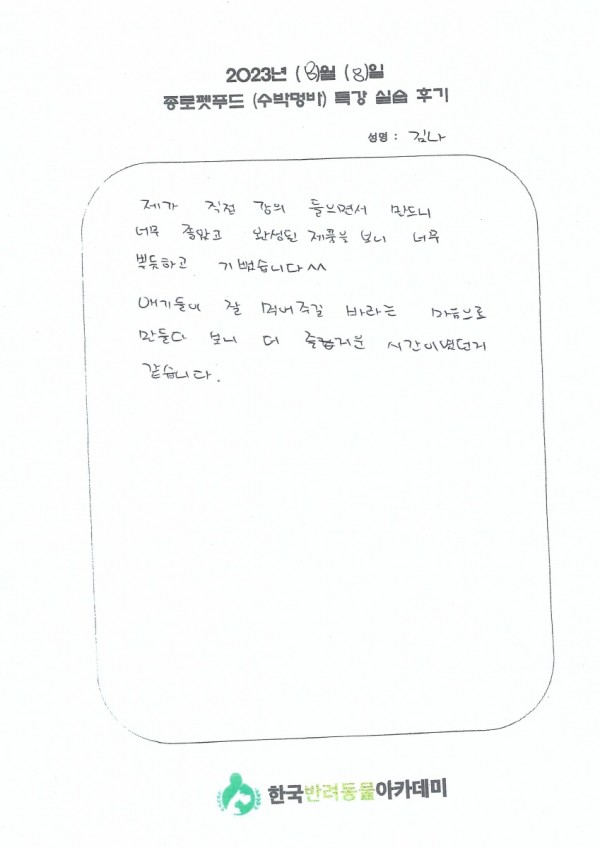 2023년 (8)월 (8)일
종로펫푸드 (수박멍바) 특강 실습 후기
성명 : 김나
제가 직접 강의 들으면서 만드니
너무 좋았고 완성된 제품을 보니 너무
뿌듯하고 기뻤습니다^^
애기들이 잘 먹어주길 바라는 마음으로
만들다 보니 더 즐거운 시간이었던거
같습니다.
한국반려동물아카데미